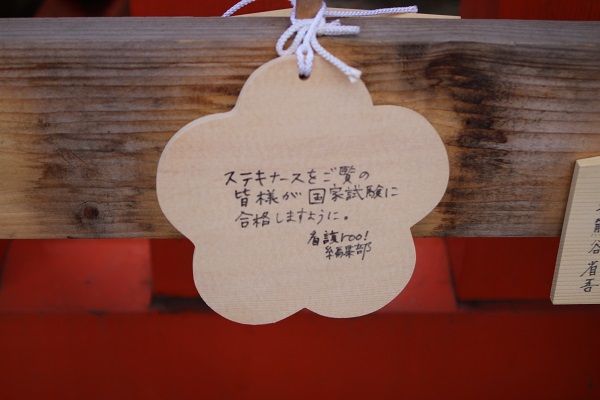 ステキナースをご覧の
皆様が国家試験に
合格しますように。
看護roo!
編集部
熊谷省吾